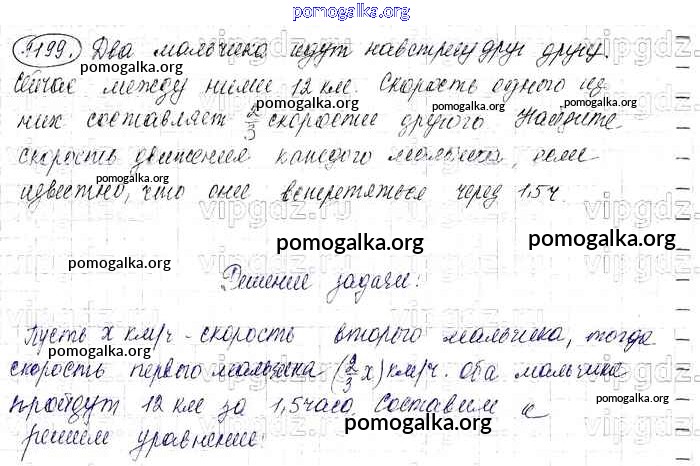 pomogalka.org
1199. Два мальчика идут навстречу друг другу.
pomogalka.org pomogalka.org
Сейчас между ними 12 км. Скорость одного из
pomogalka.org
них составляет 2/3 скорости другого. Найдите
скорость движения каждого мальчика, если
известно, что они встретяться через 1,5 ч.
pomogalka.org pomogalka.org pomogalka.org
Решение задачи:
pomogalka.org
Пусть x км/ч - скорость второго мальчика, тогда
pomogalka.org pomogalka.org
скорость первого мальчика (2/3 x) км/ч. Оба мальчика
пройдут 12 км за 1,5 часа. Составим и
pomogalka.org pomogalka.org
решим уравнение: